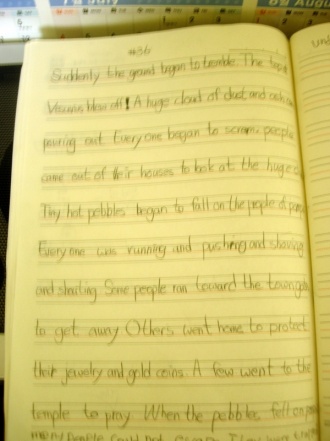 #36
Suddenly the ground began to tremble. The top of
Vesuvius blew off! A huge cloud of dust and ash
pouring out Everyone began to scream people
came out of their houses to look at the huge
Tiny hot pebbles began to fall on the people of
Everyone was running and pushing and shoving
and shouting Some people ran toward the towngate
to get away Others went home to protect
their jewelry and gold coins. A few went to the
temple to pray When the pebbles felt on
many people could not